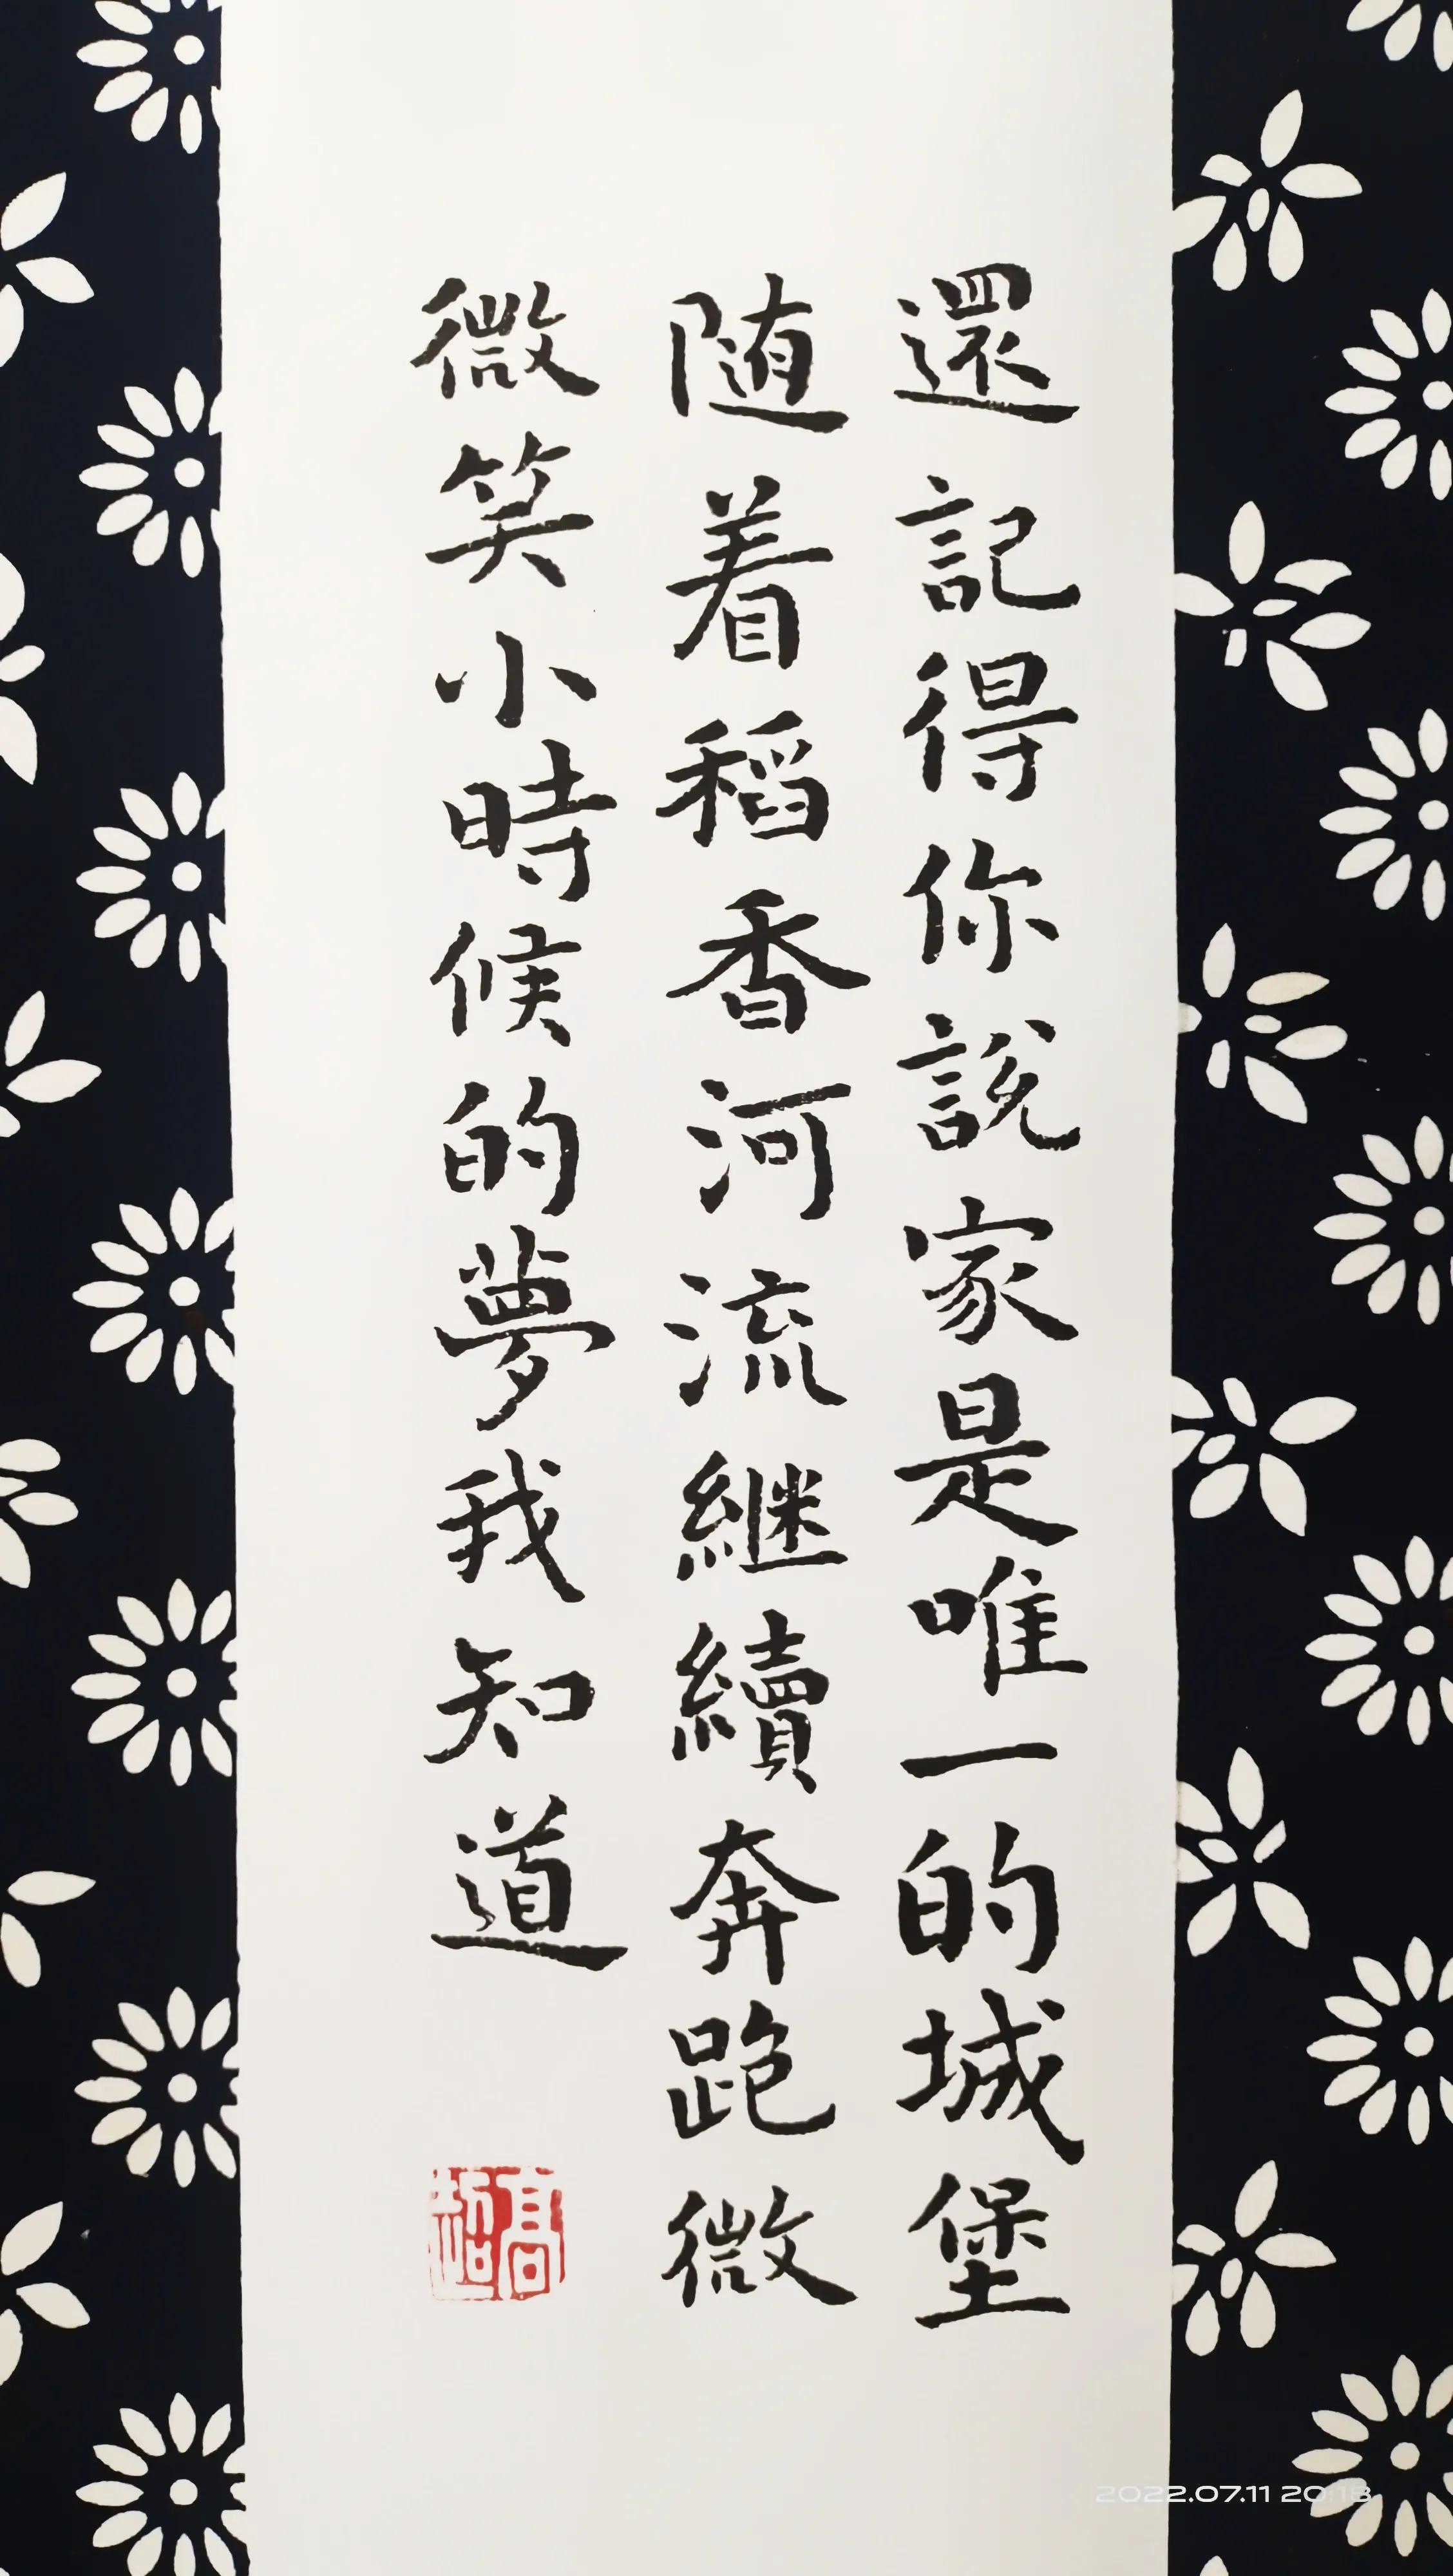 還記得你說家是唯一的城堡
随着稻香河流继續奔跑微
微笑小時候的夢我知道
2022.07.11 20:18